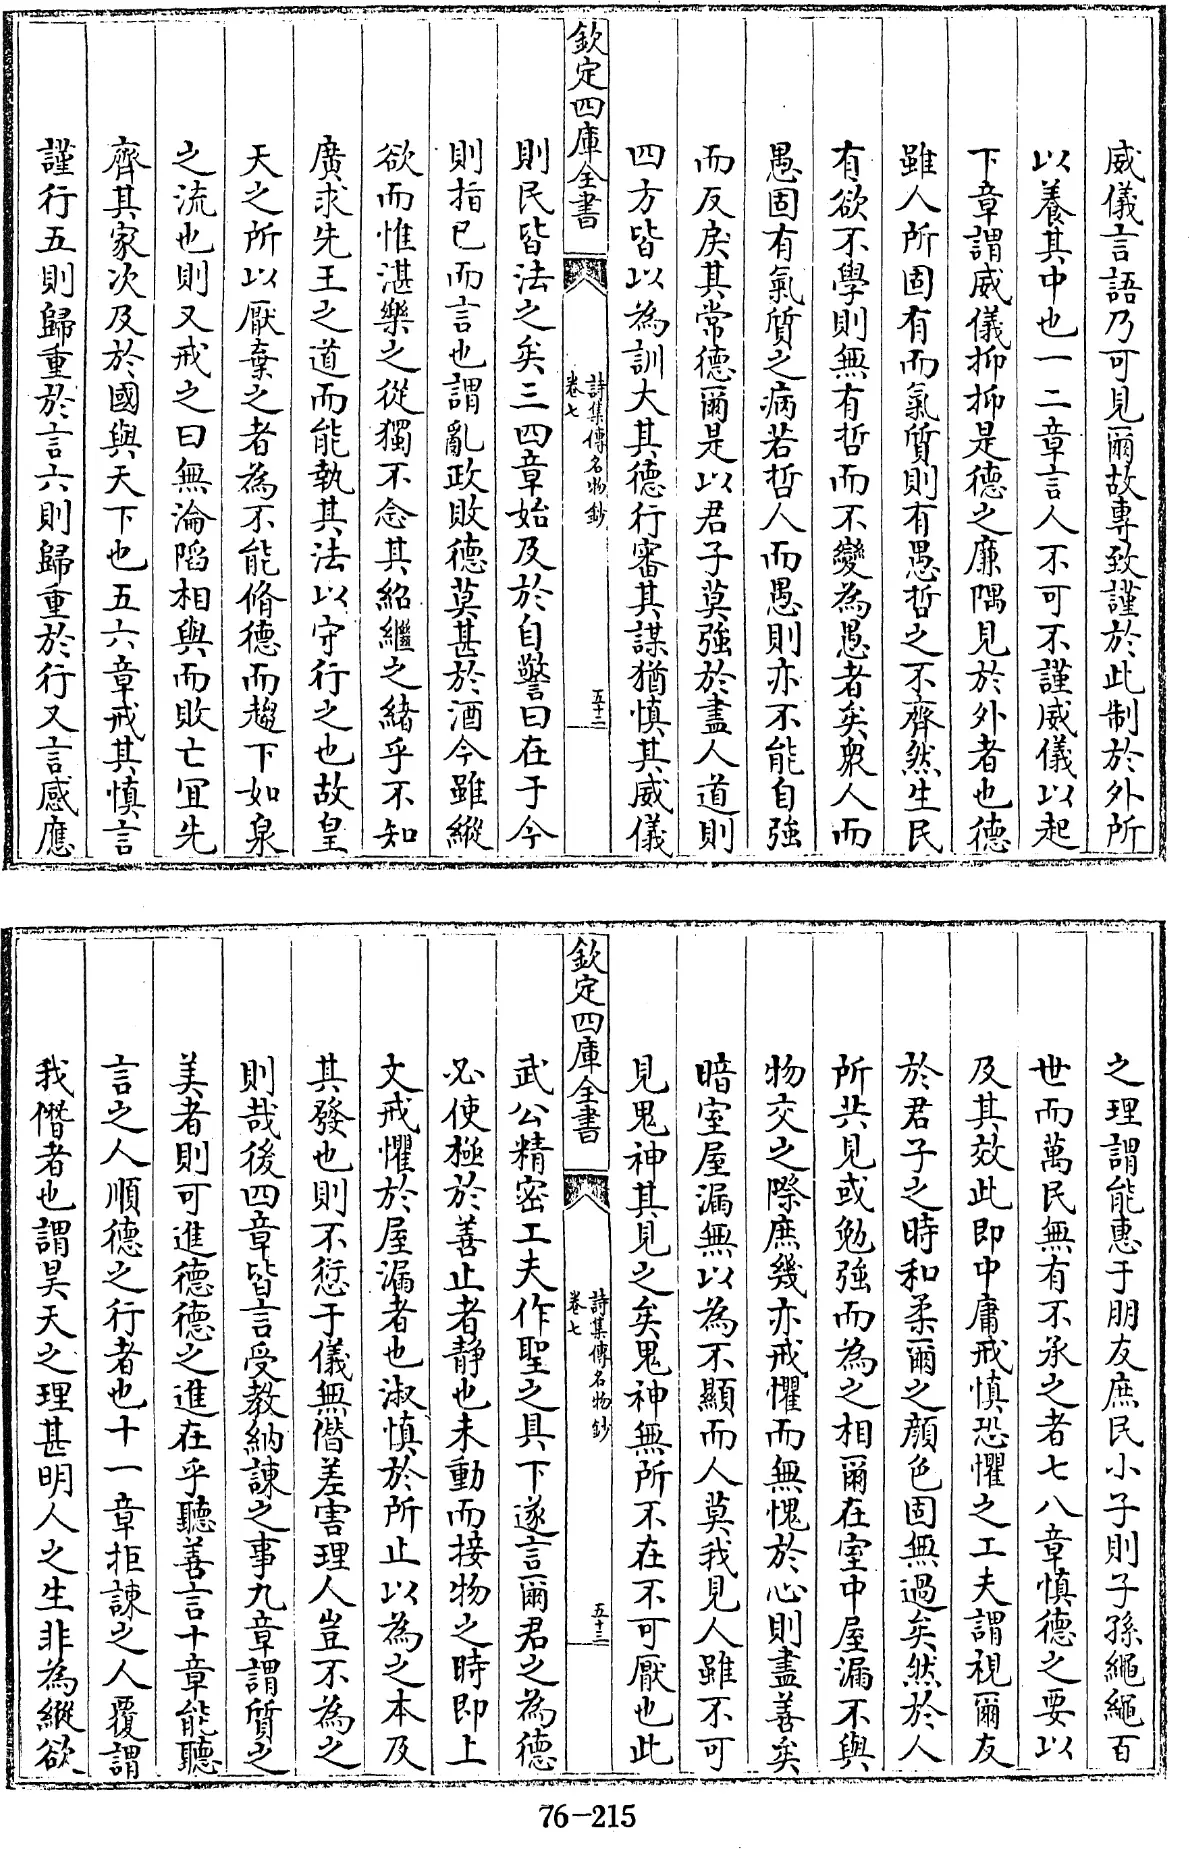 威儀言語乃可見爾故專致謹於此制於外所
以養其中也一二章言人不可不謹威儀以起
下章謂威儀抑抑是德之廉隅見於外者也德
雖人所固有而氣質則有愚哲之不齊然生民
有欲不學則無有哲而不變為愚者矣衆人而
愚固有氣質之病若哲人而愚則亦不能自強
而反戾其常德爾是以君子莫強於盡人道則
四方皆以為訓大其德行審其謀猶慎其威儀
欽定四庫全書
詩集傳名物鈔
卷七
五十二
則民皆法之矣三四章始及於自警曰在于今
則指已而言也謂亂政敗德莫甚於酒今雖縱
欲而惟湛樂之從獨不念其紹繼之緒乎不知
廣求先王之道而能執其法以守行之也故皇
天之所以厭棄之者為不能脩德而趨下如泉
之流也則又戒之曰無淪陷相與而敗亡宜先
齊其家次及於國與天下也五六章戒其慎言
謹行五則歸重於言六則歸重於行又言感應
之理謂能惠于朋友庶民小子則子孫繩繩百
世而萬民無有不承之者七八章慎德之要以
及其效此即中庸戒慎恐懼之工夫謂視爾友
於君子之時和柔爾之顏色固無過矣然於人
所共見或勉強而為之相爾在室中屋漏不與
物交之際庶幾亦戒懼而無愧於心則盡善矣
暗室屋漏無以為不顯而人莫我見人雖不可
見鬼神其見之矣鬼神無所不在不可厭也此
欽定四庫全書
詩集傳名物鈔
卷七
五十三
武公精密工夫作聖之具下遂言爾君之為德
必使極於善止者靜也未動而接物之時即上
文戒懼於屋漏者也淑慎於所止以為之本及
其發也則不愆于儀無僭差害理人豈不為之
則哉後四章皆言受教納諫之事九章謂質之
美者則可進德德之進在乎聽善言十章能聽
言之人順德之行者也十一章拒諫之人覆謂
我僭者也謂昊天之理甚明人之生非為縱欲
76-215